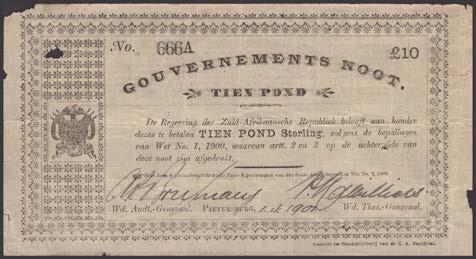 No. 666A £10
GOUVERNEMENTS NOOT.
TIEN POND
De Regeering der Zuid-Afrikaansche Republiek belooft aan houder
dezes te betalen TIEN POND Sterling, volgens de bepalingen
van Wet No. 1, 1900, waarvan artt. 2 en 3 op de achterzijde van
deze noot zijn afgedrukt.
Wd. Audt.-Generaal. PIETERSBURG, 1.4.1901 Wd. Thes.-Generaal.
Gedrukt ter Staatsdrukkerij van de Z. A. Republiek.